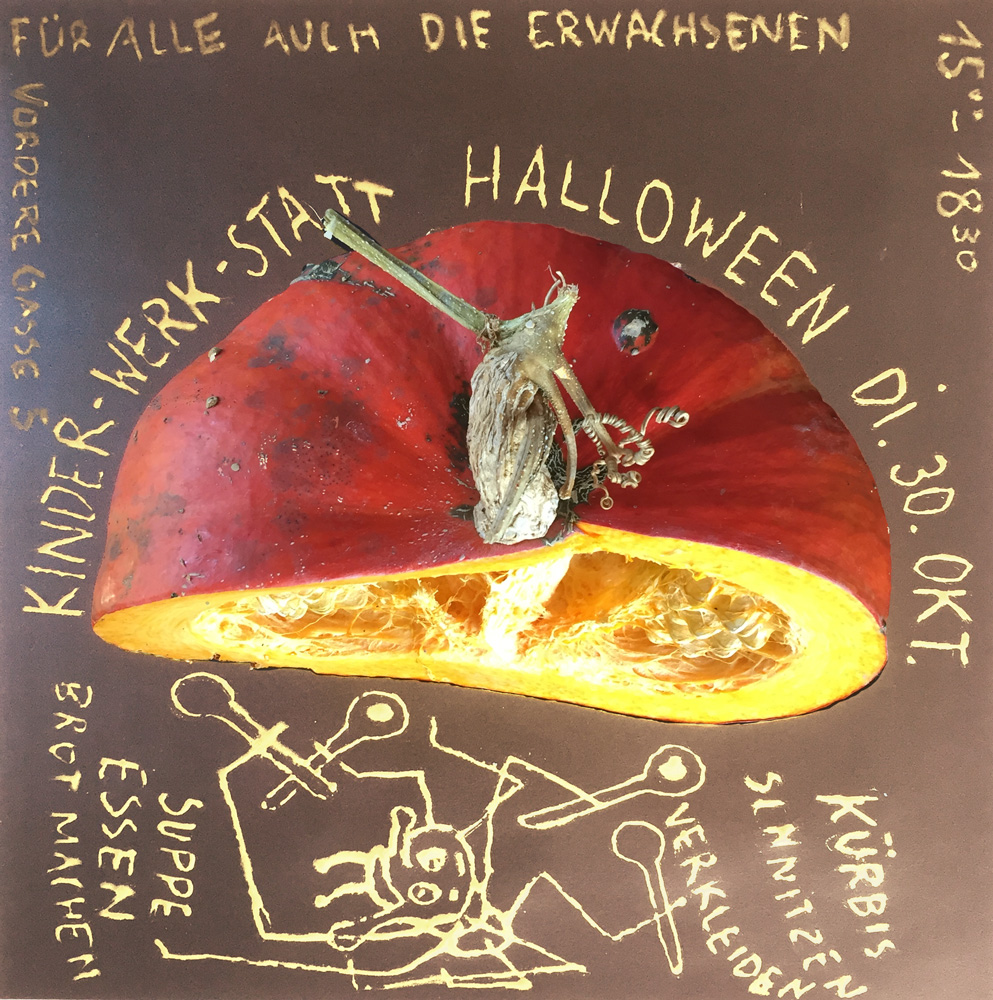 FÜR ALLE AUCH DIE ERWACHSENEN
15⁰⁰ - 18³⁰
VORDERE GASSE 5
KINDER-WERK-STATT HALLOWEEN DI. 30. OKT.
BROT MACHEN
ESSEN
SUPPE
VERKLEIDEN
SCHNITZEN
KÜRBIS